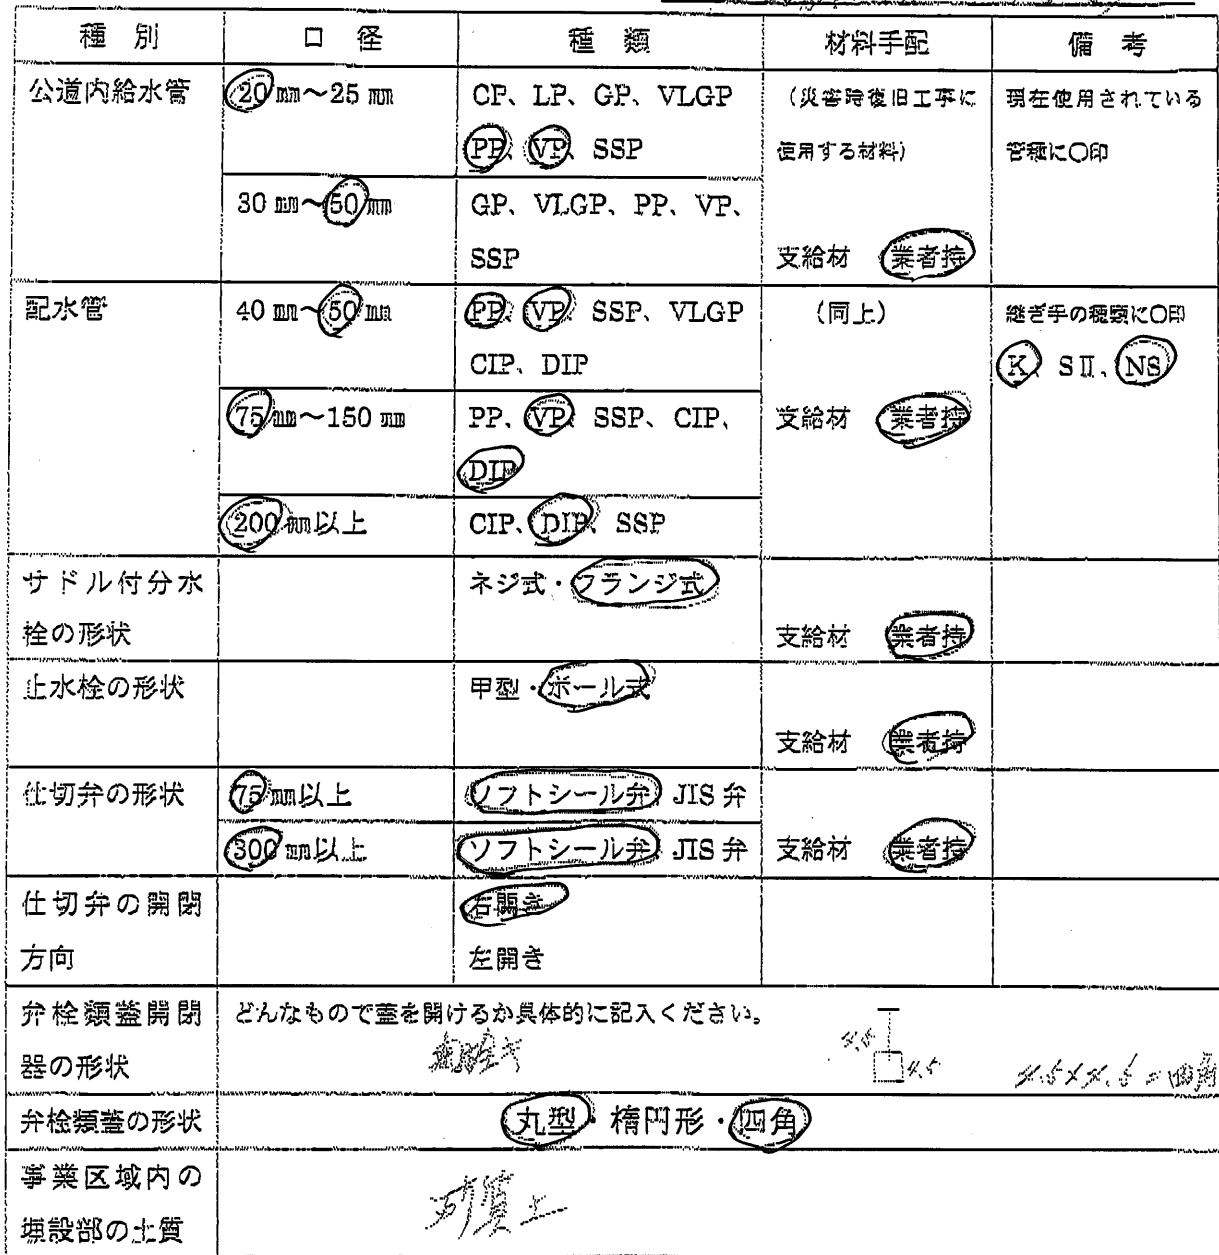 種 別 口 径 種 類 材料手配 備 考
公道内給水管 20㎜～25㎜ CP、LP、GP、VLGP (災害時復旧工事に 現在使用されている
PP、VP、SSP 使用する材料) 管種に〇印
30㎜～50㎜ GP、VLGP、PP、VP、
SSP 支給材 業者持
配水管 40㎜～50㎜ PP、VP、SSP、VLGP (同上) 継ぎ手の種類に〇印
CIP、DIP K、SⅡ、NS
75㎜～150㎜ PP、VP、SSP、CIP、 支給材 業者持
DIP
200㎜以上 CIP、DIP、SSP
サドル付分水 ネジ式・フランジ式
栓の形状 支給材 業者持
止水栓の形状 甲型・ボール式
支給材 業者持
仕切弁の形状 75㎜以上 ソフトシール弁、JIS弁
300㎜以上 ソフトシール弁、JIS弁 支給材 業者持
仕切弁の開閉 右開き
方向 左開き
弁栓類蓋開閉 どんなもので蓋を開けるか具体的に記入ください。
器の形状 4.5
弁栓類蓋の形状 丸型・楕円形・四角
事業区域内の
埋設部の土質 砂質土